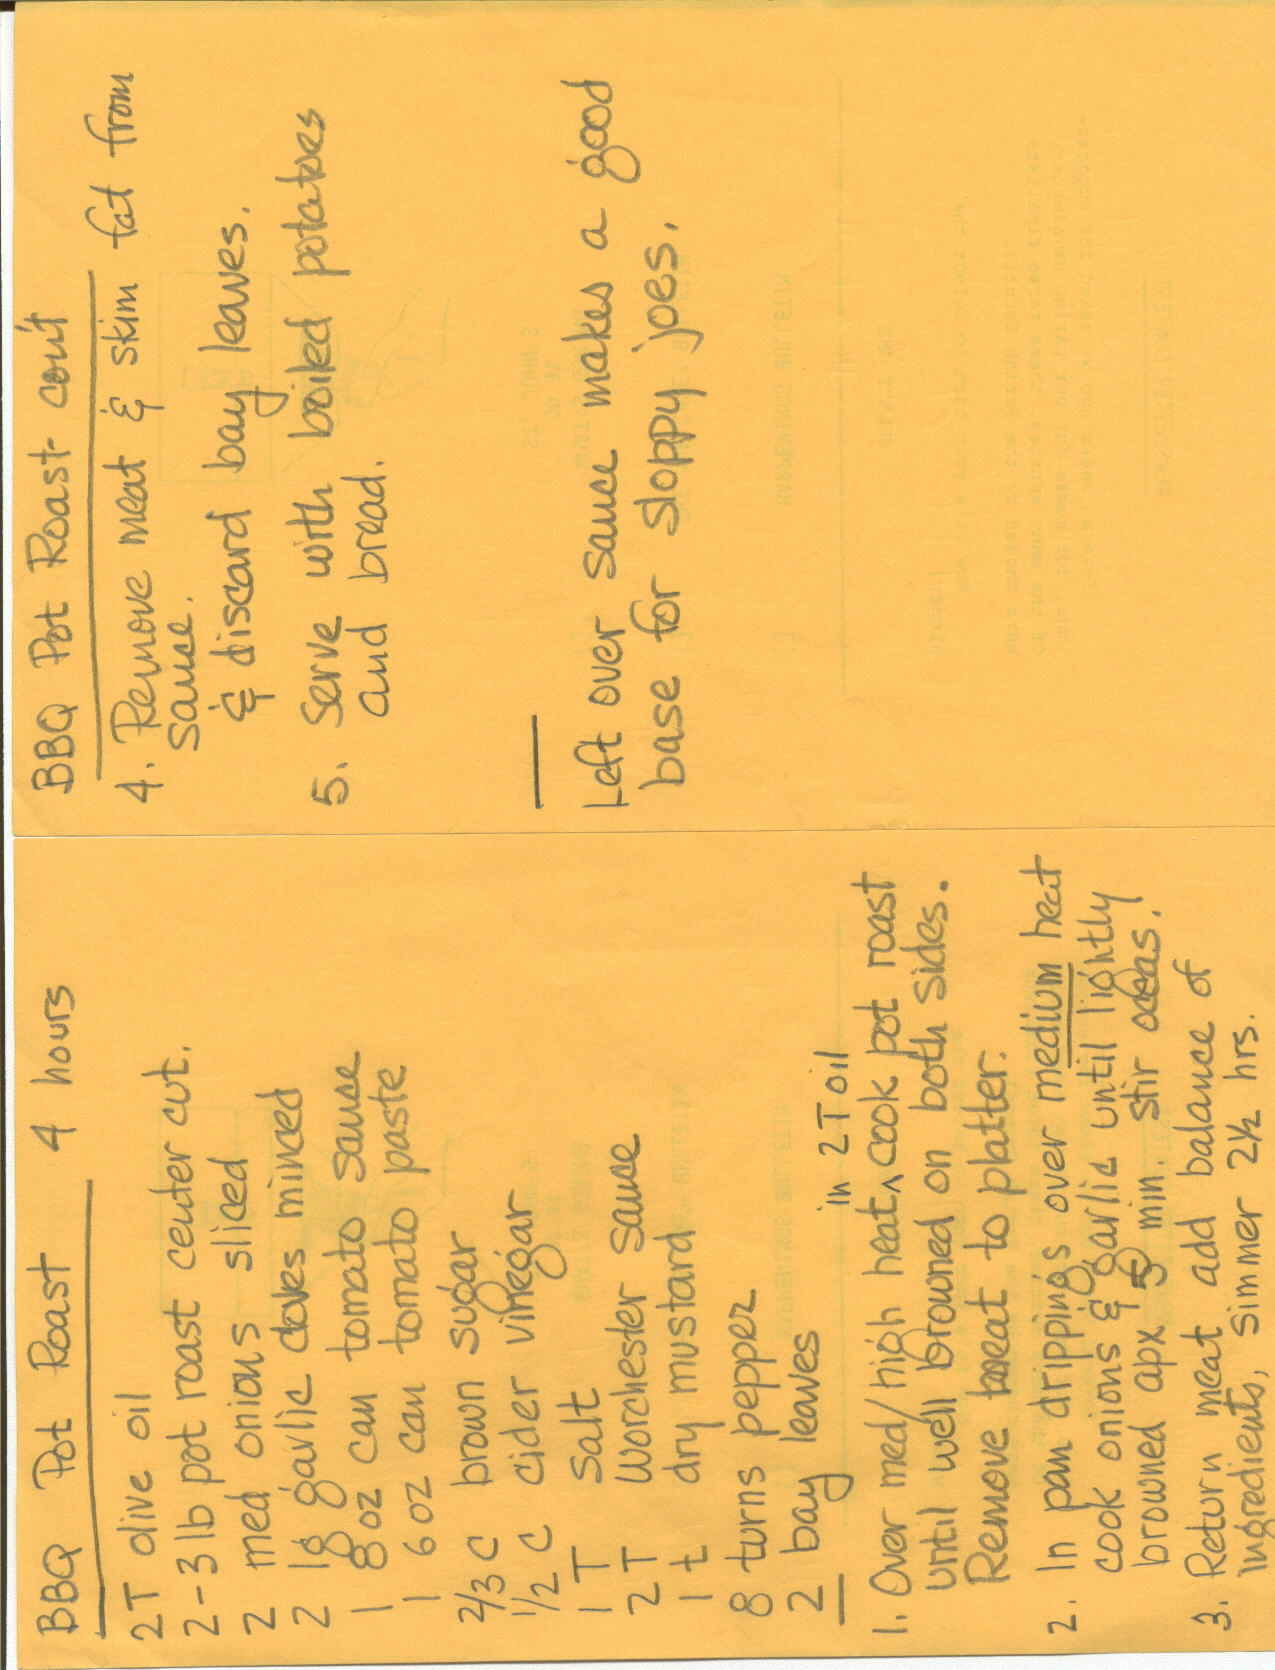 BBQ Pot Roast 4 hours
2 T olive oil
2-3 lb pot roast center cut.
2 med onions sliced
2 lg garlic cloves minced
1 8 oz can tomato sause
1 6 oz can tomato paste
2/3 C brown sugar
1/2 C cider vinegar
1 T Salt
2 T Worchester sause
1 t dry mustard
8 turns pepper
2 bay leaves
in 2 T oil
1. Over med/high heat ^ cook pot roast
until well browned on both sides.
Remove meat to platter.
2. In pan drippings over medium heat
cook onions & garlic until lightly
browned apx 5 min. stir
3. Return meat add balance of
ingredients, simmer 2½ hrs.
BBQ Pot Roast - con't
4. Remove meat & skim fat from
sause.
& discard bay leaves.
5. Serve with boiled potatoes
and bread.
Left over sauce makes a good
base for sloppy joes.